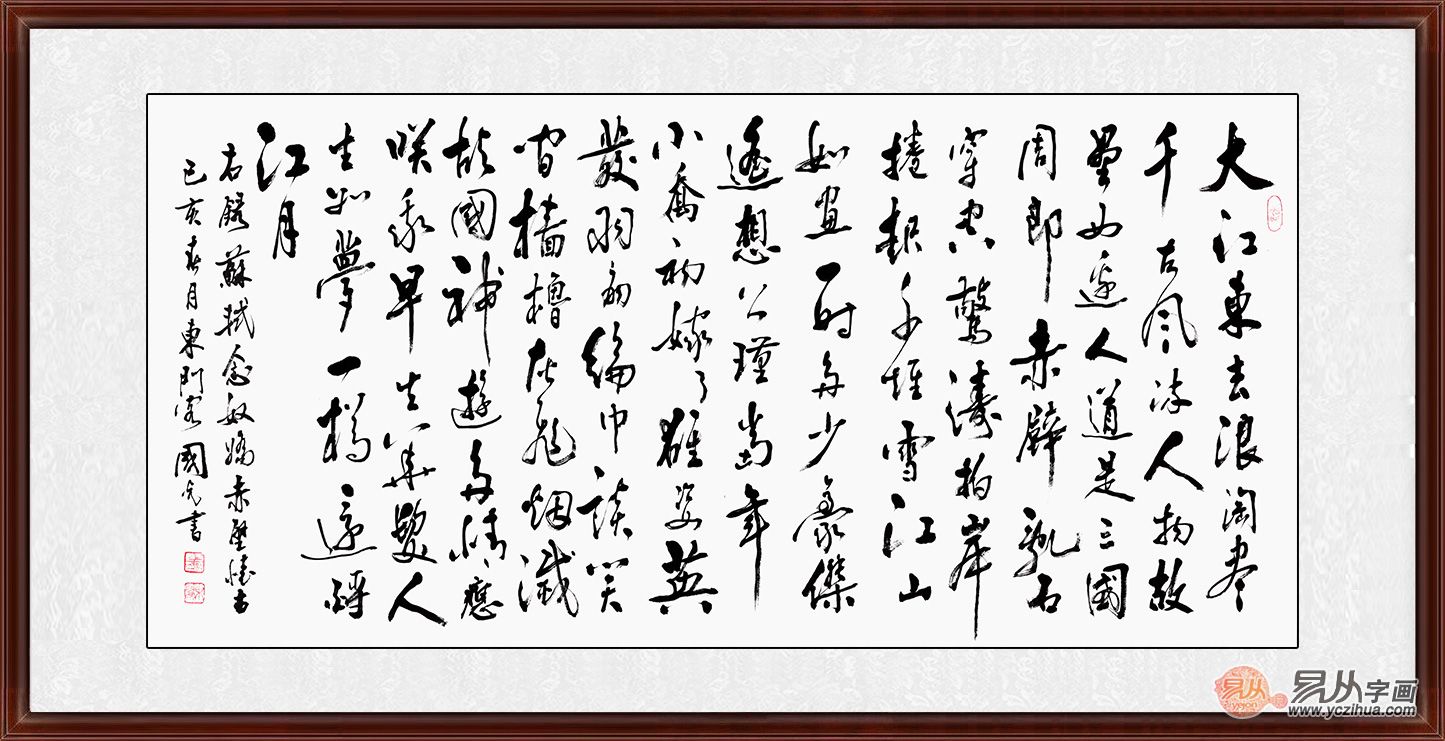 大江東去浪淘盡
千古風流人物故
壘西邊人道是三國
周郎赤壁亂石
穿空驚濤拍岸
捲起千堆雪江山
如畫一時多少豪傑
遙想公瑾當年
小喬初嫁了雄姿英
發羽扇綸巾談笑
間檣櫓灰飛烟滅
故國神遊多情應
咲我早生華髮人
生如夢一樽還酹
江月
右錄蘇軾念奴嬌赤壁懷古
己亥春月東門客國書
易从
yejoin
易从字画
www.yczihua.com